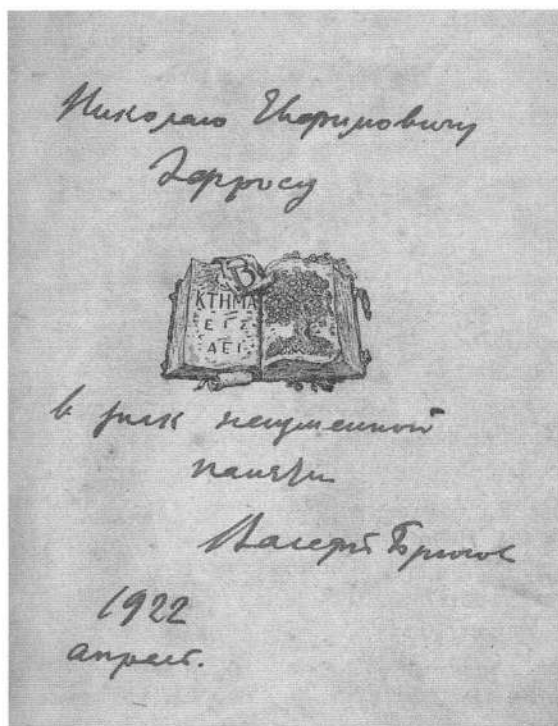 Николаю Ефимовичу
Эфросу
В
ΚΤΗΜΑ
ΕΙΣ
ΑΕΙ
в знак неизменной
памяти
Валерий Брюсов
1922
апрель.